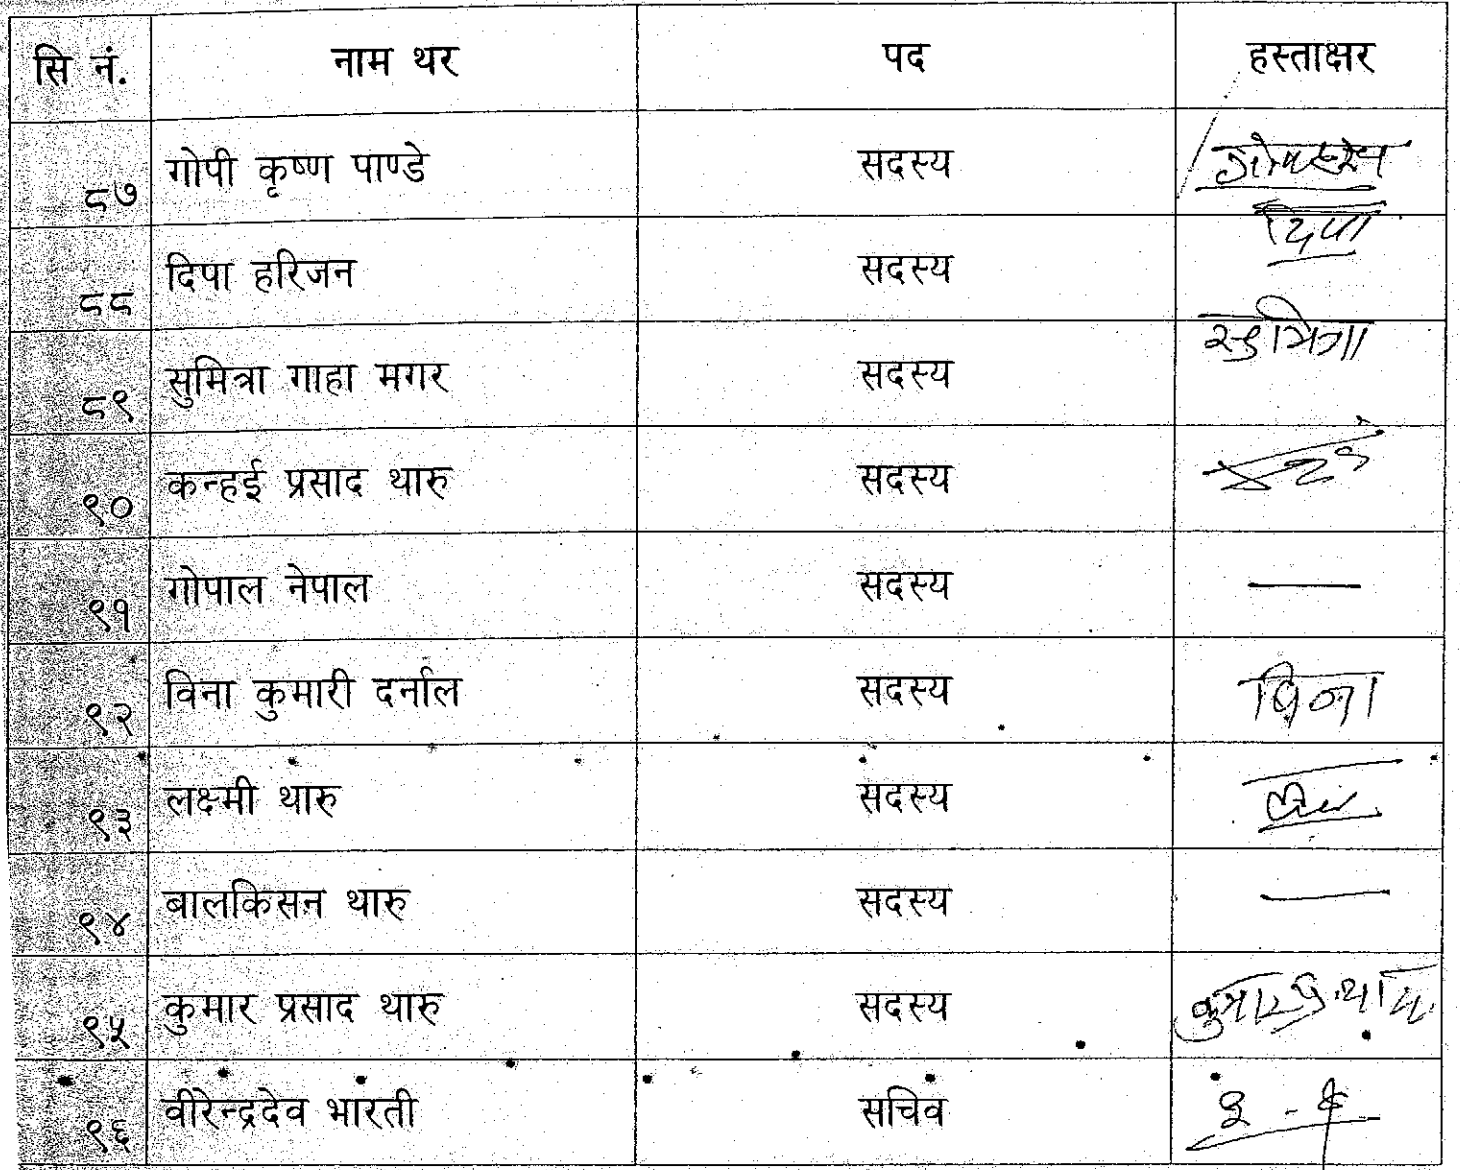 सि नं. नाम थर पद हस्ताक्षर
८७ गोपी कृष्ण पाण्डे सदस्य
८८ दिपा हरिजन सदस्य दिपा
८९ सुमित्रा गाहा मगर सदस्य सुमित्रा
९० कन्हई प्रसाद थारु सदस्य
९१ गोपाल नेपाल सदस्य —
९२ विना कुमारी दर्नाल सदस्य बिना
९३ लक्ष्मी थारु सदस्य
९४ बालकिसन थारु सदस्य —
९५ कुमार प्रसाद थारु सदस्य कुमार प्र. थारु
९६ वीरेन्द्रदेव भारती सचिव